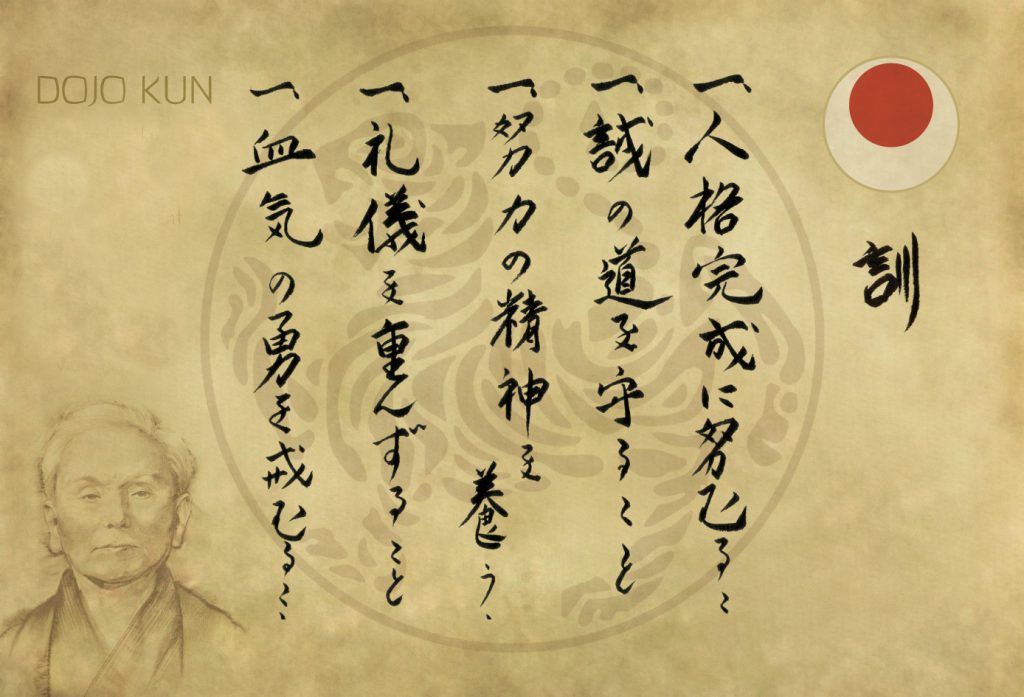 DOJO KUN
訓
一、人格完成に努むるこ
一、誠の道を守ること
一、努力の精神を養う
一、礼儀を重んずること
一、血気の勇を戒むるこ